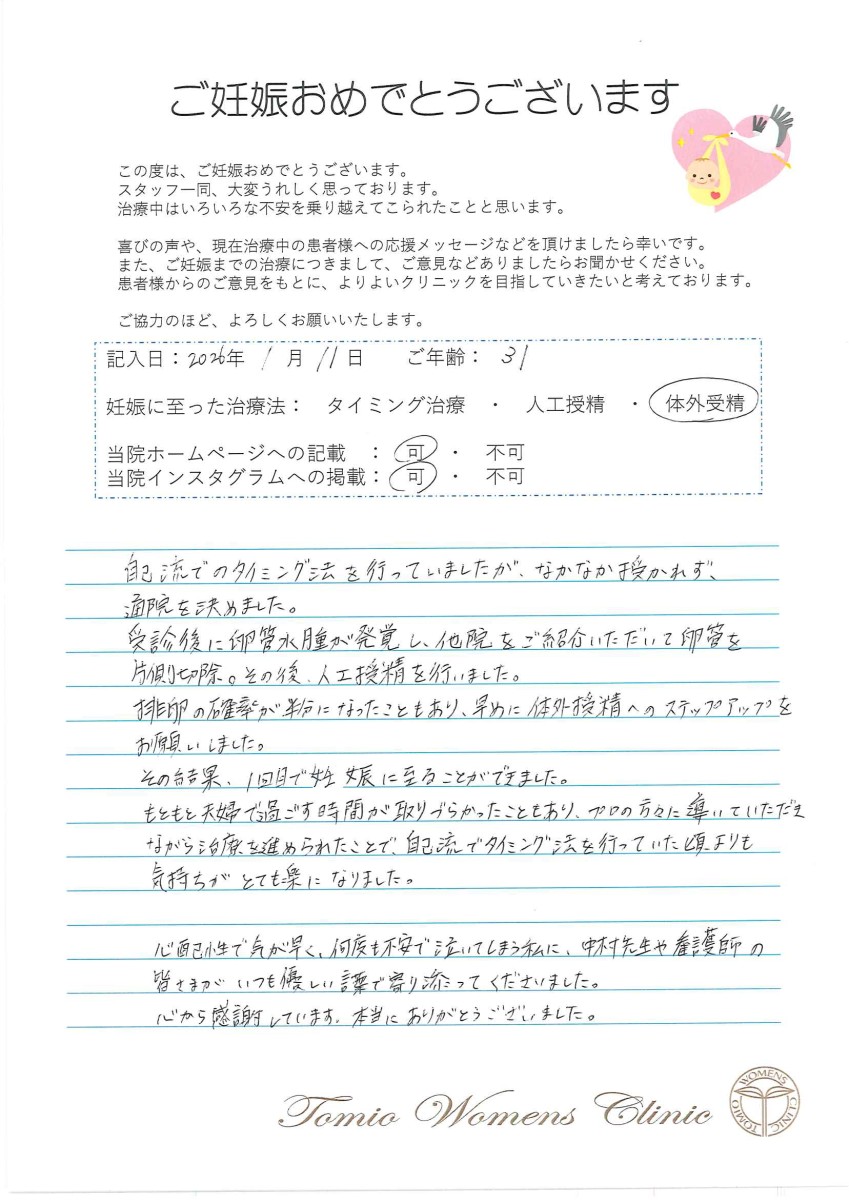 ご妊娠おめでとうございます
この度は、ご妊娠おめでとうございます。
スタッフ一同、大変うれしく思っております。
治療中はいろいろな不安を乗り越えてこられたことと思います。
喜びの声や、現在治療中の患者様への応援メッセージなどを頂けましたら幸いです。
また、ご妊娠までの治療につきまして、ご意見などありましたらお聞かせください。
患者様からのご意見をもとに、よりよいクリニックを目指していきたいと考えております。
ご協力のほど、よろしくお願いいたします。
記入日：2026年 1月 11日 ご年齢： 31
妊娠に至った治療法： タイミング治療 ・ 人工授精 ・ 体外受精
当院ホームページへの記載 ： 可 ・ 不可
当院インスタグラムへの掲載： 可 ・ 不可
自己流でのタイミング法を行っていましたが、なかなか授かれず、
通院を決めました。
受診後に卵管水腫が発覚し、他院をご紹介いただいて卵管を
片側切除。その後、人工授精を行いました。
排卵の確率が半分になったこともあり、早めに体外授精へのステップアップを
お願いしました。
その結果、1回目で妊娠に至ることができました。
もともと夫婦で過ごす時間が取りづらかったこともあり、プロの方々に導いていただき
ながら治療を進められたことで、自己流でタイミング法を行っていた頃よりも
気持ちがとても楽になりました。
心配性で気が早く、何度も不安で泣いてしまう私に、中村先生や看護師の
皆さまがいつも優しい言葉で寄り添ってくださいました。
心から感謝しています。本当にありがとうございました。
Tomio Womens Clinic
TOMIO WOMENS CLINIC